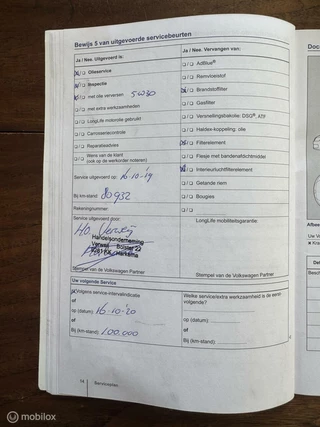 Bewijs 5 van uitgevoerde servicebeurten
Ja / Nee. Uitgevoerd is:
Ja / Nee. Vervangen van:
Olieservice
AdBlue®
Inspectie
Remvloeistof
met olie verversen 5W30
Brandstoffilter
met extra werkzaamheden
Gasfilter
LongLife motorolie gebruikt
Versnellingsbakolie: DSG®, ATF
Carrosseriecontrole
Haldex-koppeling: olie
Reparatieadvies
Filterelement
Wens van de klant
(ook op de werkorder noteren)
Flesje met bandenafdichtmiddel
Service uitgevoerd op: 16-10-19
Interieurluchtfilterelement
Getande riem
Bij km-stand: 80932
Bougies
Rekeningnummer:
Service uitgevoerd door:
LongLife mobiliteitsgarantie:
H.O. Verweij
Handelsonderneming
Verweij Bolster 22
Harkema
Stempel van de Volkswagen Partner
Stempel van de Volkswagen Partner
Uw volgende Service
Volgens service-intervalindicatie
of
op (datum): 16-10-20
of
Bij (km-stand): 100.000
Welke service/extra werkzaamheid is de eerst-
volgende?
op (datum):
of
Bij (km-stand):
14 Serviceplan
Doc
mobilox